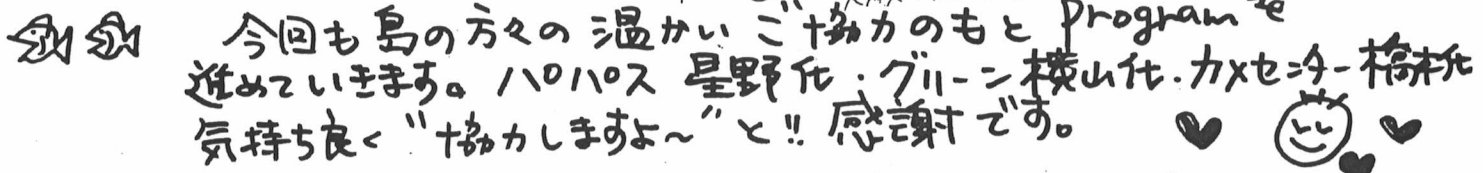 今回も島の方々の温かいご協力のもと programを
進めていきます。パパス 星野氏・グリーン横山氏・カメセンター橋本氏
気持ち良く"協力しますよ～"と!! 感謝です。